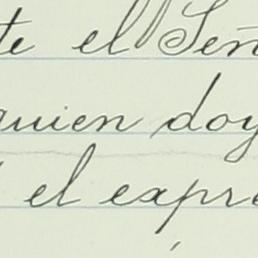 te el Señ
quien doy
el expre